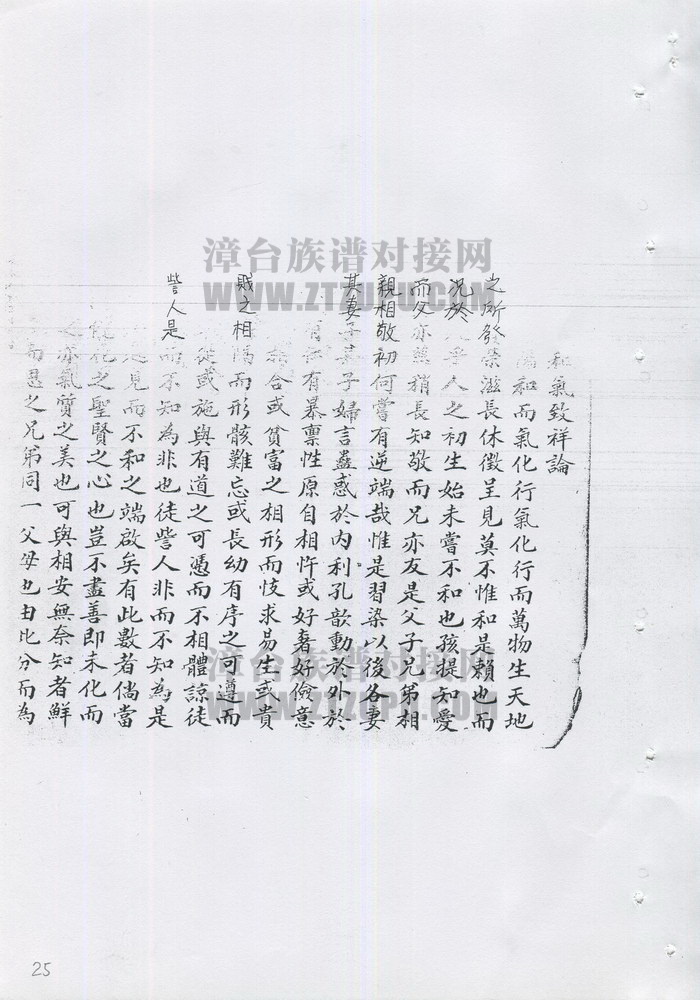 和氣致祥論
和而氣化行氣化行而萬物生天地
之所發榮滋長休徵呈見莫不惟和是賴也而
況於乎人之初生始未嘗不和也孩提知愛
而父亦慈稍長知敬而兄亦友是父子兄弟相
親相敬初何嘗有逆端哉惟是習染以後各妻
其妻子其子婦言蠱惑於內利孔歆動於外於
有暴禀性原自相忤或好奢好儉意
合或貧富之相形而忮求易生或貴
賤之相隔而形骸難忘或長幼有序之可遵而
徒或施與有道之可憑而不相體諒徒
訾人是而不知為非也徒訾人非而不知為是
見而不和之端啟矣有此數者倘當
化之聖賢之心也豈不盡善即未化而
亦氣質之美也可與相安無奈知者鮮
而思之兄弟同一父母也由比分而為
漳台族谱对接网
WWW.ZTZUPU.COM
漳台族谱对接网
WWW.ZTZUPU.COM
25